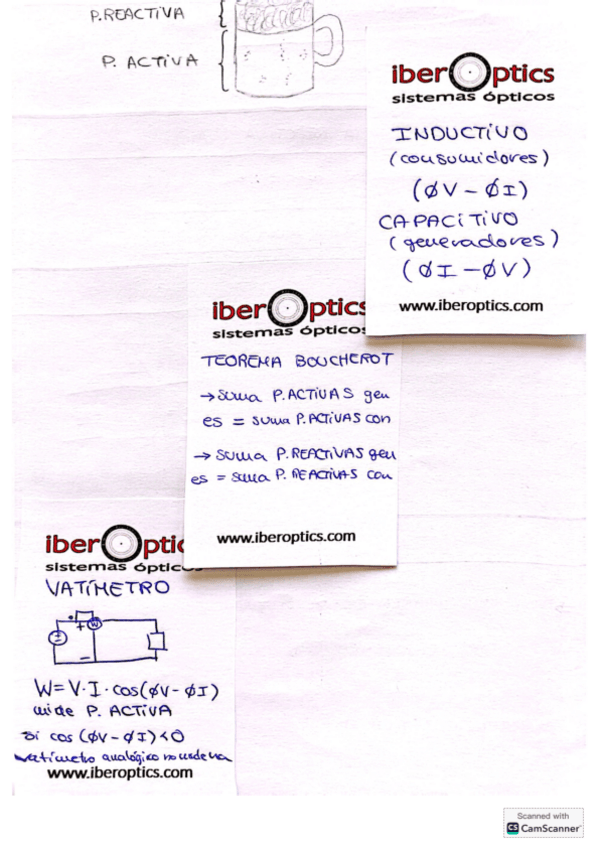 P.REACTIVA
P. ACTIVA
iberOptics
sistemas ópticos
INDUCTIVO
(consumidores)
(ØV - ØI)
CAPACITIVO
(generadores)
(ØI - ØV)
www.iberoptics.com
iberOptics
sistemas ópticos
TEOREMA BOUCHEROT
→ suma P.ACTIVAS gen
es = suma P.ACTIVAS con
→ suma P.REACTIVAS gen
es = suma P. REACTIVAS con
www.iberoptics.com
iberOptic
sistemas ópticos
VATÍMETRO
+ W
-
W = V · I · cos(ØV - ØI)
mide P. ACTIVA
si cos (ØV - ØI) < 0
vatímetro analógico no
www.iberoptics.com
Scanned with
CS CamScanner